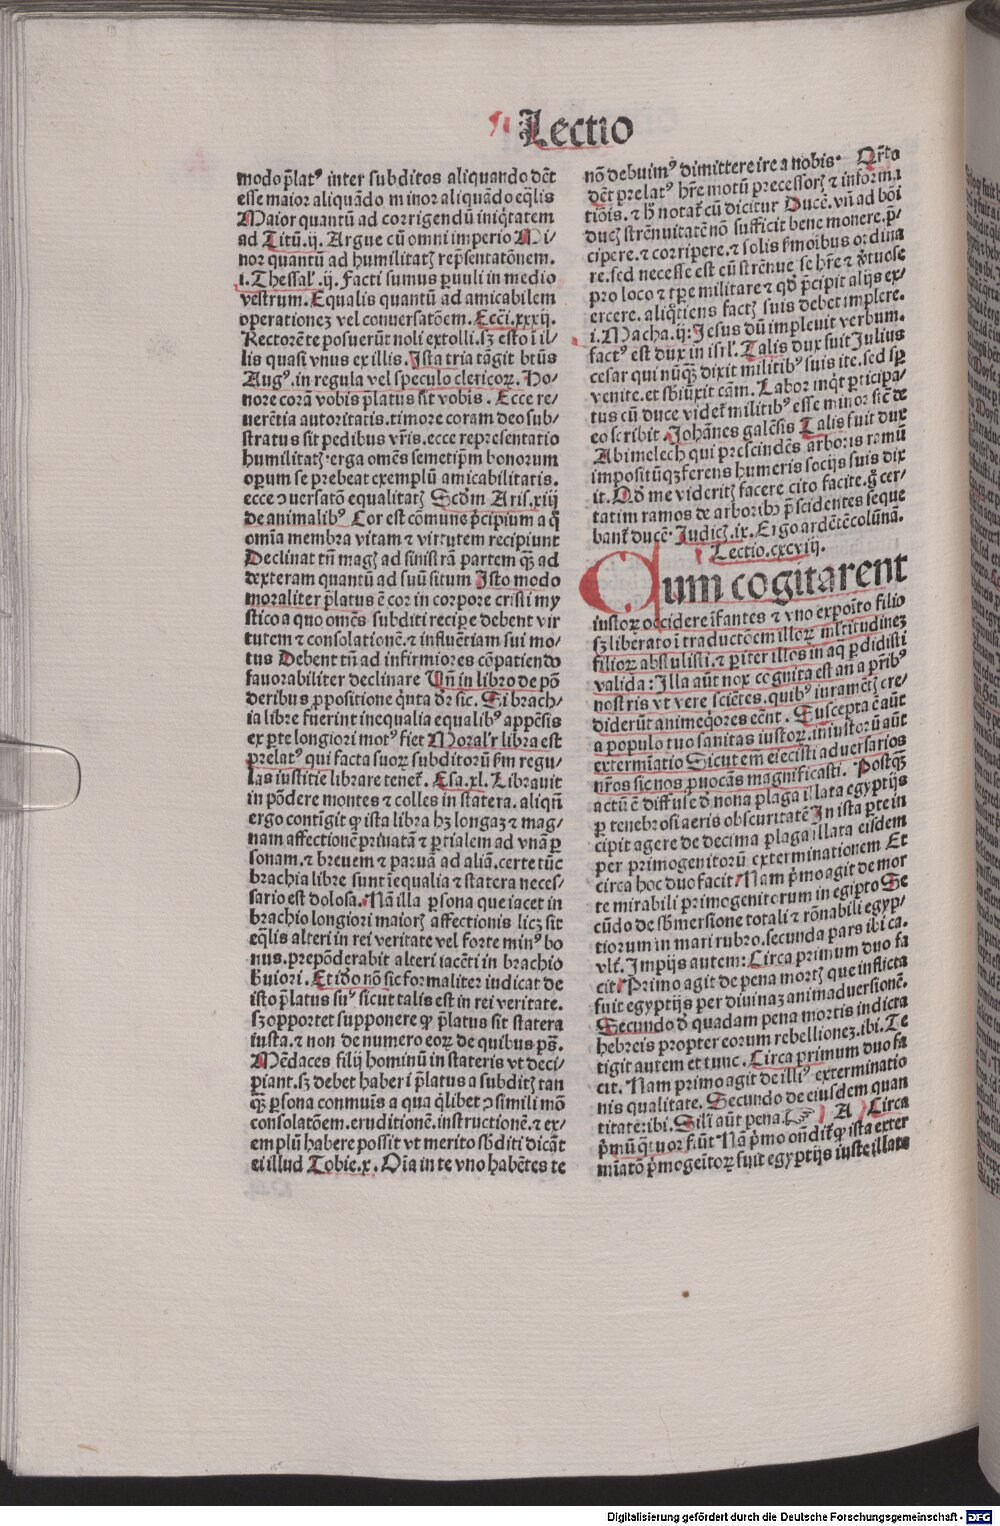 Lectio
modo p̄lat⁹ inter subditos aliquando dēt
esse maior aliquādo minor aliquādo eq̄lis
Maior quantū ad corrigendū iniq̄tatem
ad Titū.ij. Argue cū omni imperio Mi/
nor quantū ad humilitatꝫ rep̄sentatōnem.
i.Thessal'.ij. Facti sumus paruuli in medio
vestrum. Equalis quantū ad amicabilem
operationeꝫ vel conuersatōem. Ecci.xxxij.
Rectorē te posuerūt noli extolli. sꝫ esto ī il/
lis quasi vnus ex illis. Ista tria tāgit btūs
Aug⁹. in regula vel speculo clericoꝝ. Ho/
nore corā vobis p̄latus sit vobis. Ecce re/
uerētia autoritatis. timore coram deo sub/
stratus sit pedibus vr̄is. ecce representatio
humilitatꝫ erga omēs semetip̄m bonorum
operum se prebeat exemplū amicabilitatis.
ecce ↄuersatōn equalitatꝫ Scd̄m Aris.xiij
de animalib⁹ Cor est cōmune p̄ncipium a q̄
omīa membra vitam ⁊ virtutem recipiunt
Declinat tn̄ magꝫ ad sinistrā partem qꝫ ad
dexteram quantū ad suū situm Isto modo
moraliter p̄latus ē cor in corpore cristi my
stico a quo omēs subditi recipe debent vir
tutem ⁊ consolationē. ⁊ influētiam sui mo/
tus Debent tn̄ ad infirmiores cōpatiendo
fauorabiliter declinare Vn̄ in libro de pō
deribus ꝓpositione q̄nta dr̄ sic. Si brach/
ia libre fuerint inequalia equalib⁹ appēsis
ex ꝑte longiori mot⁹ fiet Moral'r libra est
prelat⁹ qui facta suoꝝ subditorū ẜm regu/
las iustitie librare tenet. Esa.xl. Librauit
in pōdere montes ⁊ colles in statera. aliqn̄
ergo contīgit ꝙ ista libra hꝫ longaꝫ ⁊ mag/
nam affectionē priuatā ⁊ ꝑtialem ad vnā ꝑ
sonam. ⁊ breuem ⁊ paruā ad aliā. certe tūc
brachia libre sunt īequalia ⁊ statera neces/
sario est dolosa. Nā illa ꝑsona que iacet in
brachio longiori maiorꝫ affectionis licꝫ sit
eq̄lis alteri in rei veritate vel forte min⁹ bo
nus. prepōderabit alteri iacēti in brachio
breuiori. Et iō nō sic formaliter iudicat de
isto p̄latus su⁹ sicut talis est in rei veritate.
sꝫ opportet supponere ꝙ p̄latus sit statera
iusta. ⁊ non de numero eoꝝ de quibus ps̄.
Mēdaces filij hominū in stateris vt deci/
piant. sꝫ debet haberī p̄latus a subditꝫ tan
qꝫ ꝑsona conmuīs a qua q̄libet ↄsimili mō
consolatōem. eruditionē. instructionē. ⁊ ex/
emplū habere possit vt merito sb̄diti dicāt
ei illud Tobie.x. Oīa in te vno habētes te
nō debuim⁹ dimittere ire a nobis. Qrto
dēt prelat⁹ hr̄e motū precessorꝫ ⁊ informa
tiōis. ⁊ h̄ notat cū dicitur Ducē. vn̄ ad boī
ducꝫ strēnuitatē nō sufficit bene monere. p̄
cipere. ⁊ corripere. ⁊ solis ẜmoibus ordina
re. sed necesse est eū strēnue se hr̄e ⁊ ꝟtuose
pro loco ⁊ tpe militare ⁊ qd̄ p̄cipit alijs ex/
ercere. aliqtiens factꝫ suis debet implere.
i. Macha.ij: Jesus dū impleuit verbum.
fact⁹ est dux in isrl'. Talis dux fuit Julius
cesar qui nūqꝫ dixit militib⁹ suis ite. sed sp̄
venite. et sb̄iūxit cām. Labor inq̄t ꝑticipa/
tus cū duce videt militib⁹ esse minor sic̄ de
eo scribit Johānes galēsis Talis fuit dux
Abimelech qui prescindēs arboris ramū
impositūqꝫ ferens humeris socijs suis dix
it. Qd̄ me videritꝫ facere cito facite. g̊ cer/
tatim ramos de arboribꝫ p̄scidentes seque
bant ducē. Judicꝫ.ix. Ergo ardētē colūnā.
Lectio.cxcviij.
Cum cogitarent
iustoꝝ occidere īfantes ⁊ vno expoīto filio
sꝫ liberato ī traductōem illoꝝ ml̄titudineꝫ
filioꝝ abstulisti. ⁊ ꝑiter illos in aq̄ ꝑdidisti
valida: Illa aūt nox cognita est an a prib⁹
nostris vt vere sciētes. quib⁹ iuramētꝫ cre/
diderūt animeq̄ores eēnt. Suscepta ē aūt
a populo tuo sanitas iustoꝝ. iniustorū aūt
exterminatio Sicut em̄ eiecisti aduersarios
nr̄os sic nos ꝓuocās magnificasti. Postqꝫ
actū ē diffuse d̄ nona plaga illata egyptijs
ꝑ tenebrosi aeris obscuritatē In ista ꝑte in
cipit agere de decima plaga illata eisdem
per primogenitorū exterminationem Et
circa hoc duo facit Nam p̄mo agit de mor
te mirabili primogenitorum in egipto Se
cūdo de sb̄mersione totali ⁊ rōnabili egyp/
tiorum in mari rubro. secunda pars ibi ca.
vlt̄. Impijs autem: Circa primum duo fa
cit Primo agit de pena mortꝫ que inflicta
fuit egyptijs per diuinaꝫ animaduersionē.
Secundo d̄ quadam pena mortis indicta
hebreis propter eorum rebellioneꝫ. ibi. Te
tigit autem et tunc. Circa primum duo fa
cit. Nam primo agit de illi⁹ exterminatio
nis qualitate. Secundo de eiusdem quan
titate: ibi. Sil'i aūt pena. A Circa
p̄mū q̄tuor fiūt Nā p̄mo oñdit ꝙ ista exter
mīatō p̄mogeītoꝝ fuit egyptijs iuste illata
Digitalisierung gefördert durch die Deutsche Forschungsgemeinschaft - DFG